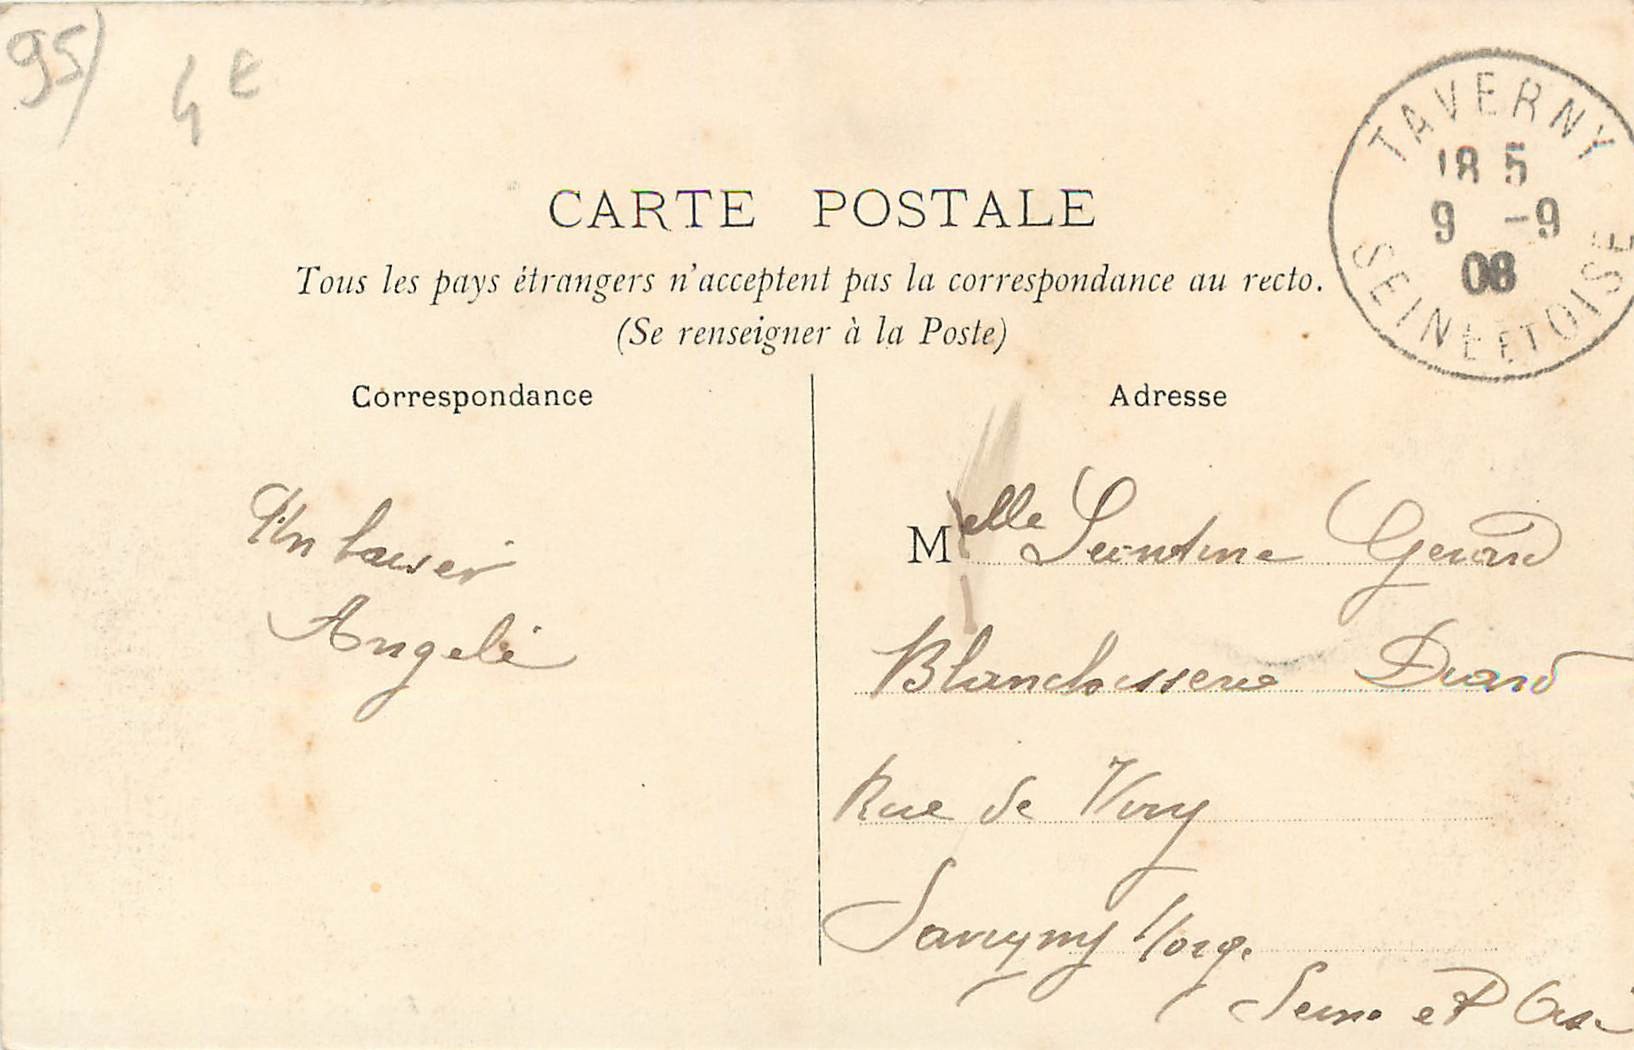 95)
4 €
TAVERNY
18 5
9 -9
08
SEINE ET OISE
CARTE POSTALE
Tous les pays étrangers n'acceptent pas la correspondance au recto.
(Se renseigner à la Poste)
Correspondance
Un baiser
Angele
Adresse
Melle Leontine Gerard
Blanchisserie
Rue de Viry
Savigny s/org.
Seine et Oise